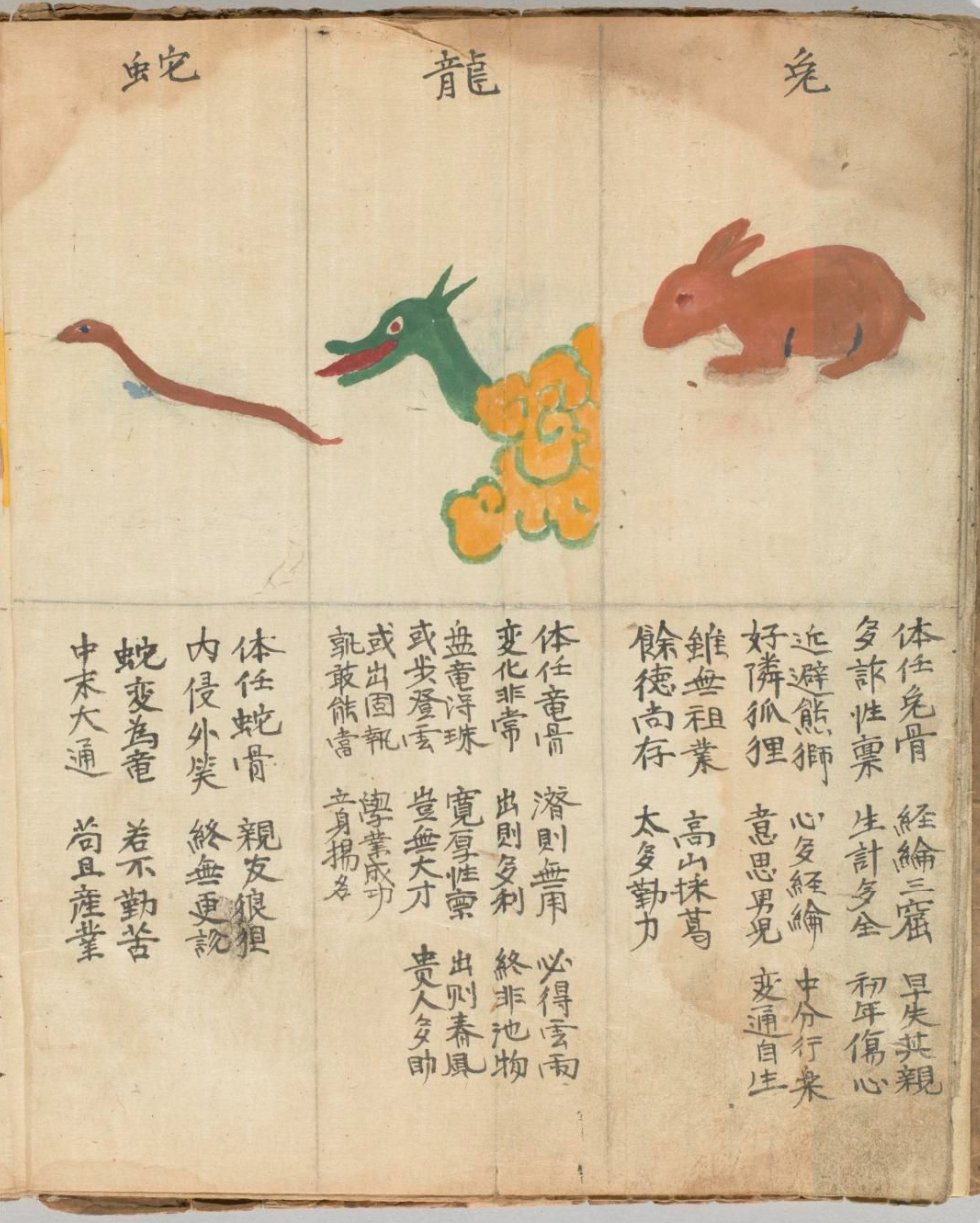 兔
体任兔骨 経綸三窟 早失其親
多詐性稟 生計多全 初年傷心
近避熊獅 心多経綸 中分行楽
好隣狐狸 意思男児 変通自生
雖無祖業 高山採葛
餘徳尚存 太多勤力
龍
体任竜骨 潜則無用 必得雲雨
変化非常 出則多利 終非池物
盘竜得珠 寛厚性稟 出则春風
或步登雲 豈無大才 贵人多助
或出固執 學業成功
孰敢能當 立身揚名
蛇
体任蛇骨 親友狼狙
内侵外笑 終無更説
蛇変為竜 若不勤苦
中末大通 苟且産業